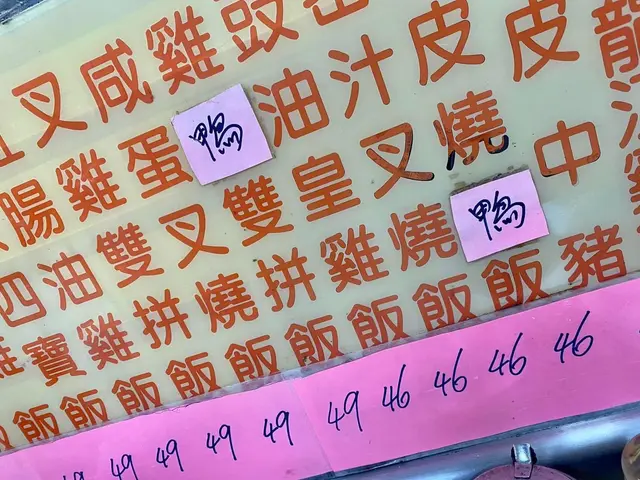 皮中豬
皮燒鴨飯
汁叉燒飯
豉油皇雞飯
雞鴨雙拼飯
咸蛋叉燒飯
叉雞雙拼飯
腸油雞飯
四寶飯
雞飯
49 49 49 49 49 46 46 46 46